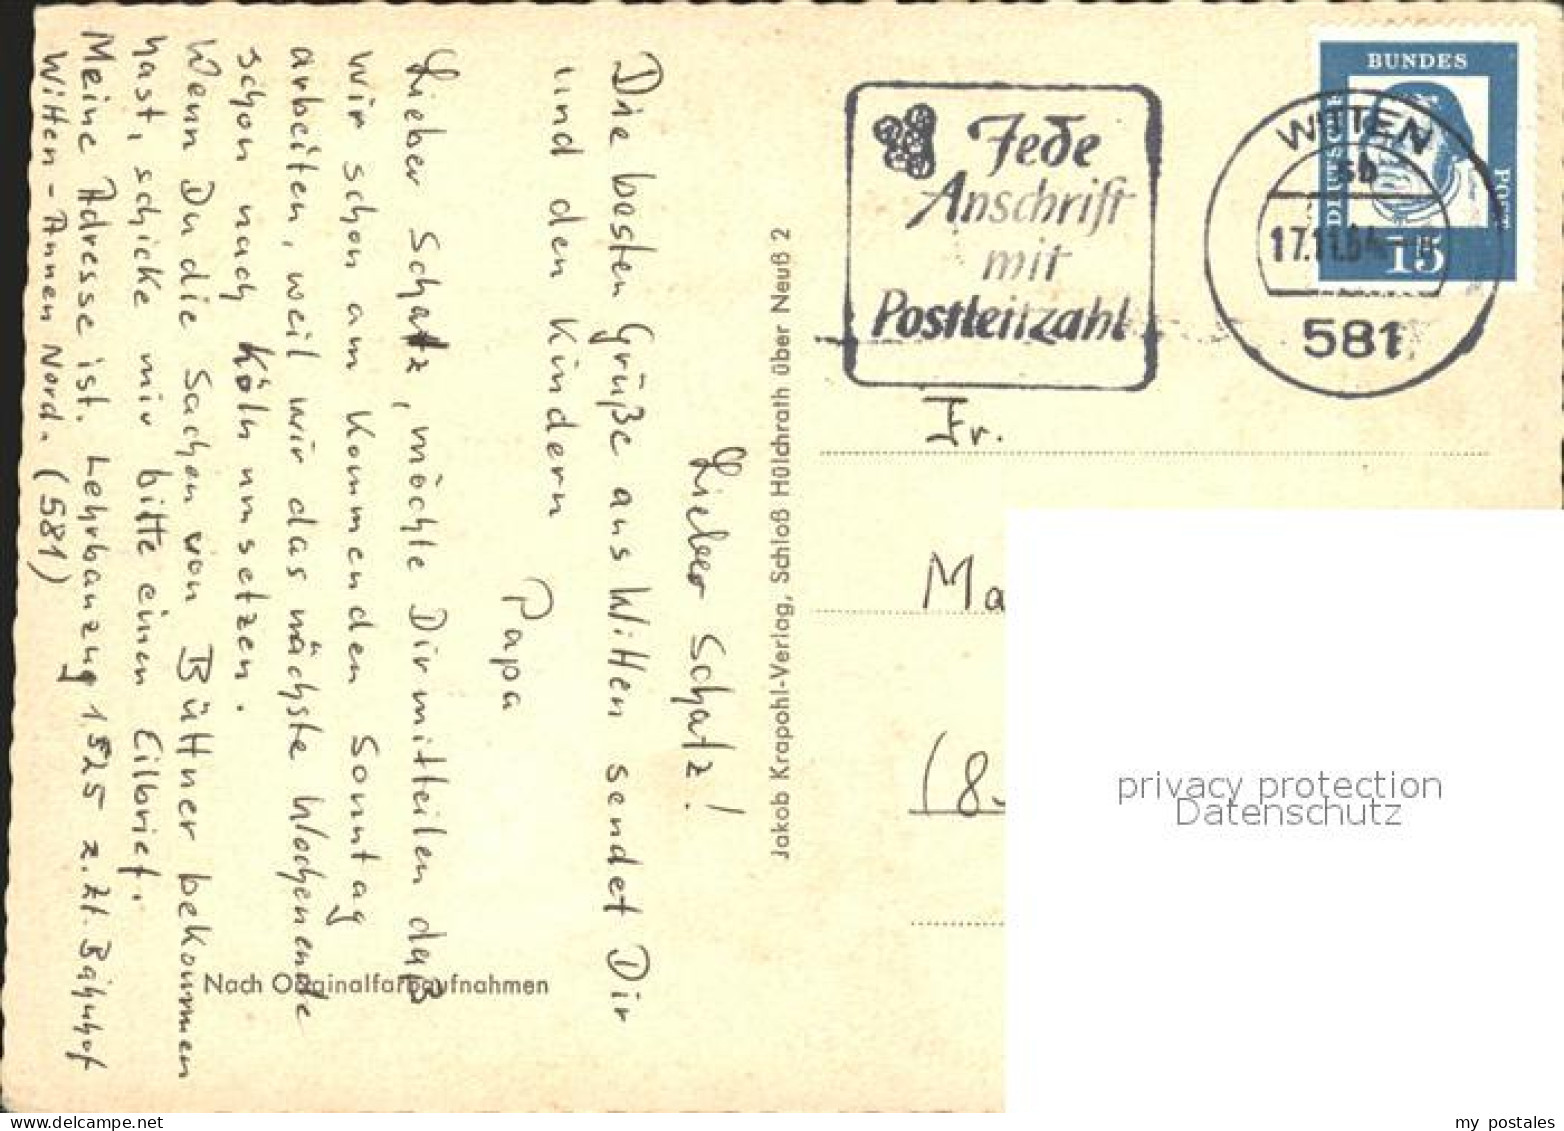 Lieber Schatz!
Die besten Grüße aus Witten sendet Dir
und den Kindern
Papa
Lieber Schatz, möchte Dir mitteilen daß
wir schon am Kommenden Sonntag
arbeiten, weil wir das nächste Wochenende
schon nach Köln umsetzen.
Wenn Du die Sachen von Büttner bekommen
hast, schicke mir bitte einen Eilbrief.
Meine Adresse ist. Lehrbauzug 1525 z.Zt. Bahnhof
Witten-Annen Nord. (581)
Nach Originalfarbaufnahmen
Jakob Krapohl-Verlag, Schloß Hülchrath über Neuß 2
Jede
Anschrift
mit
Postleitzahl
WITTEN
sb
17.11.64
581
DEUTSCHE
BUNDES
POST
15
Fr.
Ma
(8.
privacy protection
Datenschutz
my postales